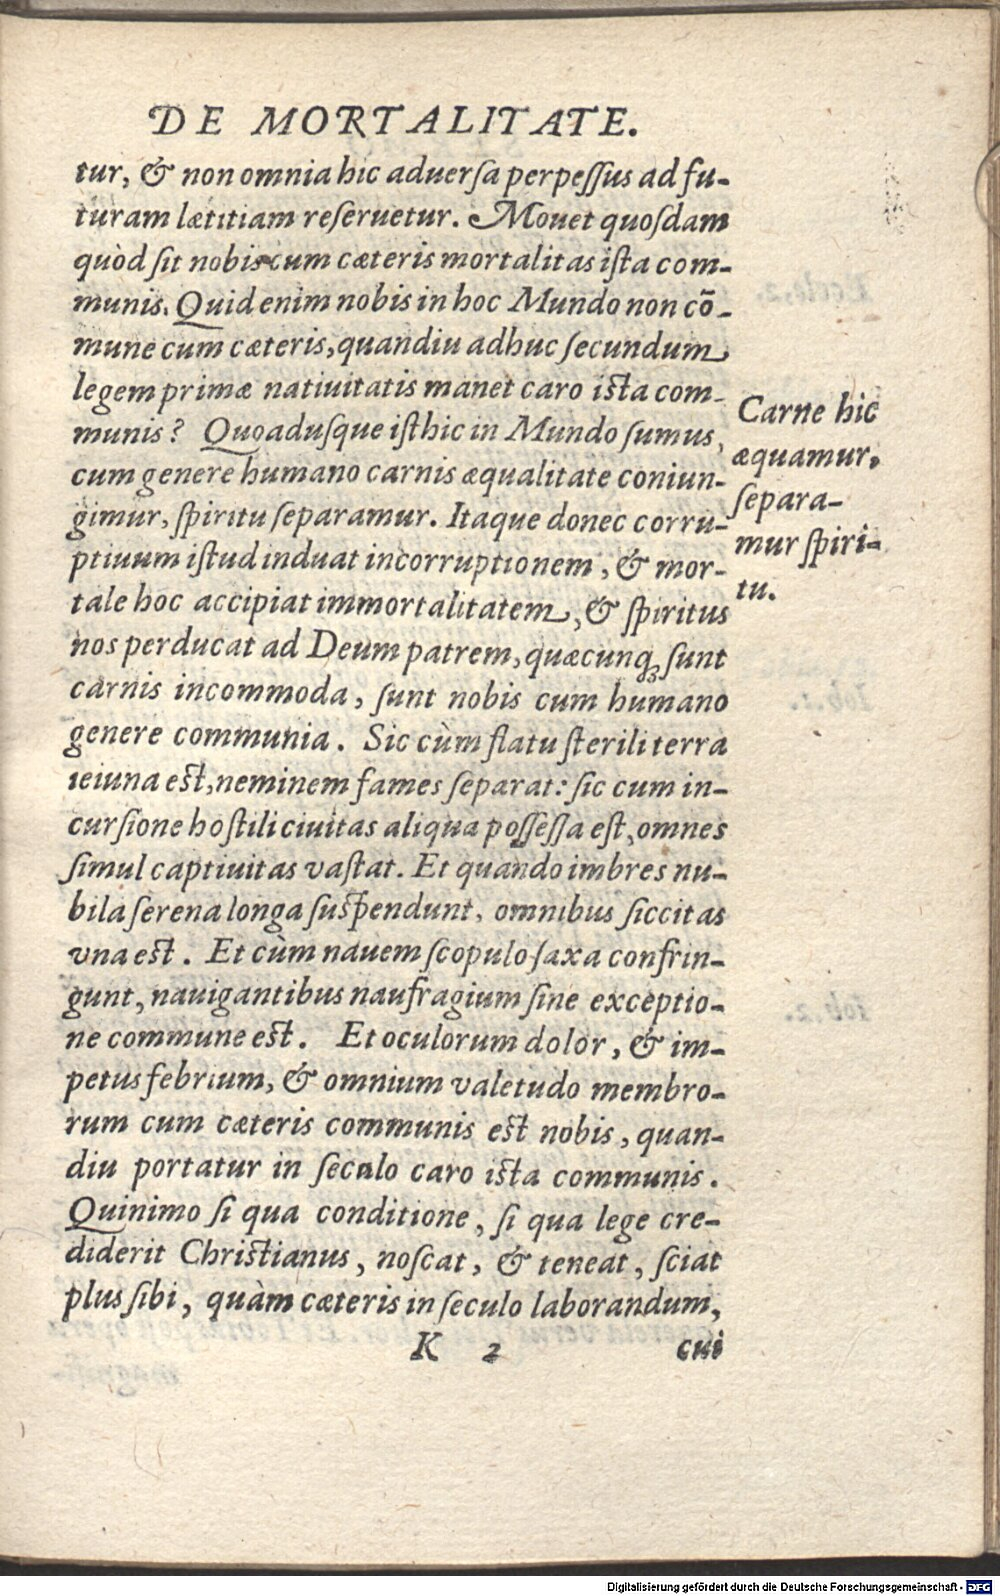 DE MORTALITATE.
tur, & non omnia hic aduersa perpessus ad fu-
turam lætitiam reseruetur. Mouet quosdam
quòd sit nobis cum cæteris mortalitas ista com-
munis. Quid enim nobis in hoc Mundo non cō-
mune cum cæteris, quandiu adhuc secundum
legem primæ natiuitatis manet caro ista com-
munis? Quoadusque isthic in Mundo sumus,
cum genere humano carnis æqualitate coniun-
gimur, spiritu separamur. Itaque donec corru-
ptiuum istud induat incorruptionem, & mor-
tale hoc accipiat immortalitatem, & spiritus
nos perducat ad Deum patrem, quæcunq; sunt
carnis incommoda, sunt nobis cum humano
genere communia. Sic cùm flatu sterili terra
ieiuna est, neminem fames separat: sic cum in-
cursione hostili ciuitas aliqua possessa est, omnes
simul captiuitas vastat. Et quando imbres nu-
bila serena longa suspendunt, omnibus siccitas
vna est. Et cùm nauem scopulosa saxa confrin-
gunt, nauigantibus naufragium sine exceptio-
ne commune est. Et oculorum dolor, & im-
petus febrium, & omnium valetudo membro-
rum cum cæteris communis est nobis, quan-
diu portatur in seculo caro ista communis.
Quinimo si qua conditione, si qua lege cre-
diderit Christianus, noscat, & teneat, sciat
plus sibi, quàm cæteris in seculo laborandum,
K 2 cui
Carne hic
æquamur,
separa-
mur spiri-
tu.
Digitalisierung gefördert durch die Deutsche Forschungsgemeinschaft - DFG